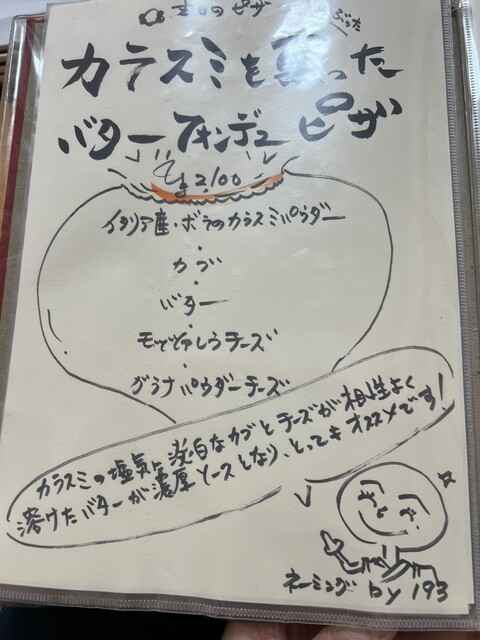 本日のピザ
ぶった
カラスミを った
バターフォンデュピザ
¥2100
イタリア産・ボラのカラスミパウダー
・
カブ
・
バター
・
モッツァレラチーズ
・
グラナパウダーチーズ
カラスミの塩気に淡白なカブとチーズが相性よく
溶けたバターが濃厚ソースとなり、とってもオススメです!
ネーミング by 193